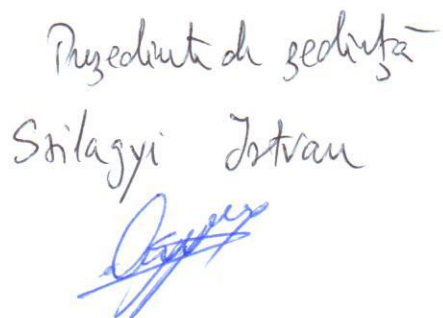 Preşedinte de şedinţă
Szilagyi Istvan